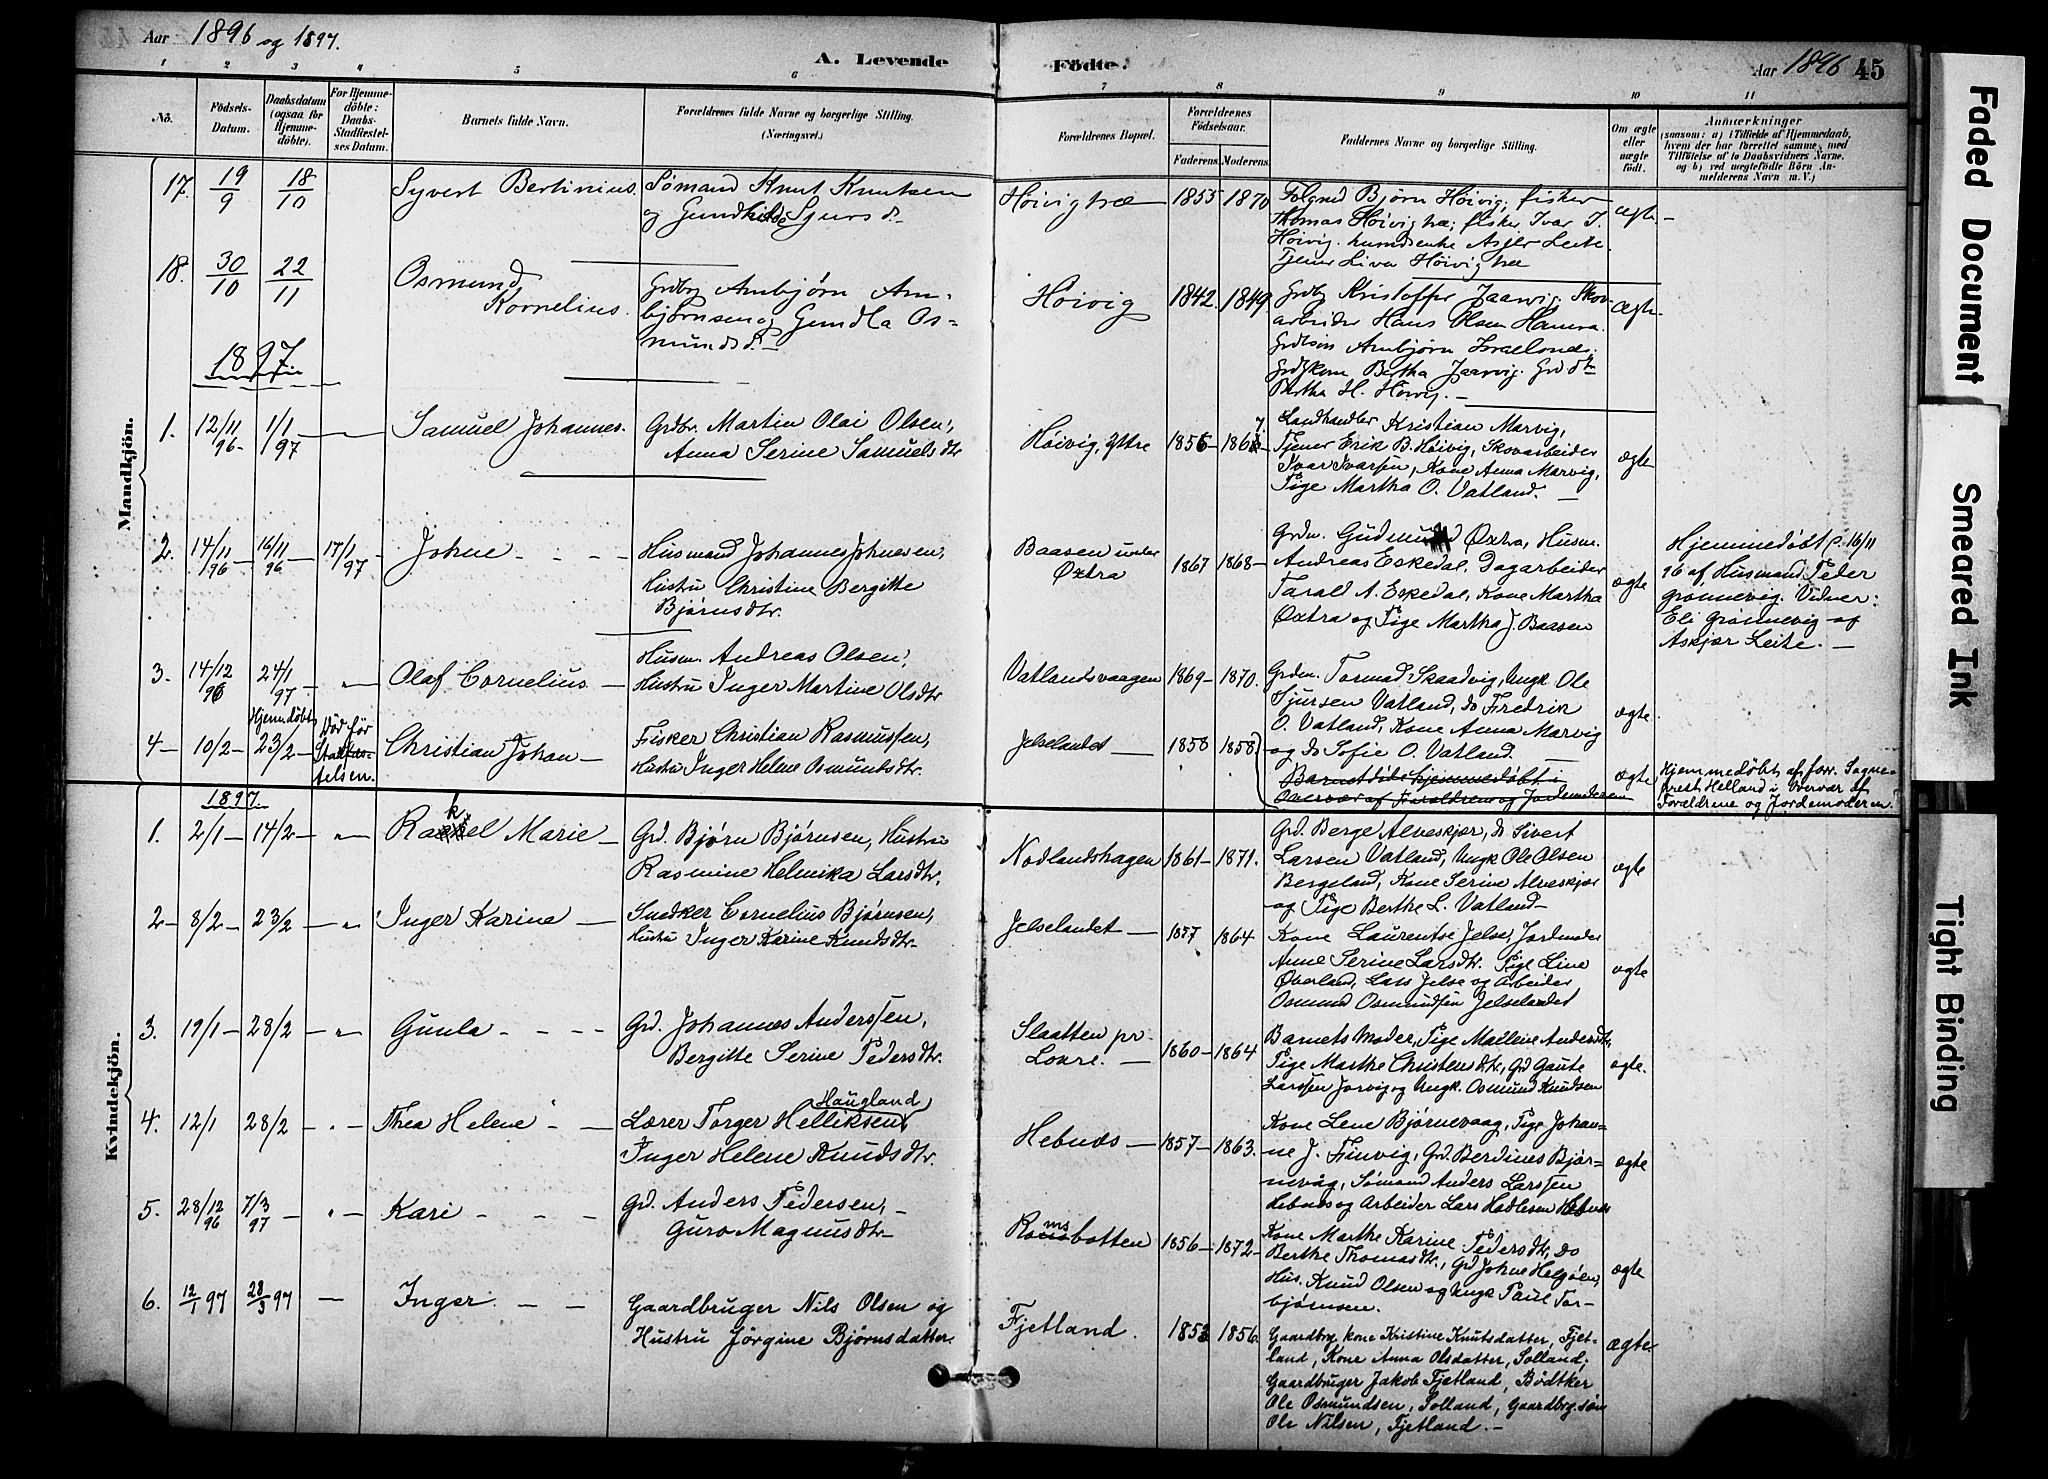 Aar 1896 og 1897.
A. Levende
Fødte.
Aar 1896 45
1 2 3 4 5 6 7 8 9 10 11
No.
Fødsels-
Datum.
Daabsdatum
(ogsaa for
Hjemme-
døbte).
For Hjemme-
døbte:
Daabs-
Stadfæstel-
ses Datum.
Barnets fulde Navn.
Forældrenes fulde Navne og borgerlige Stilling.
(Næringsvei.)
Forældrenes Bopæl.
Forældrenes
Fødselsaar.
Faderens. Moderens.
Faddernes Navne og borgerlige Stilling.
Om ægte
eller
uægte
født.
Anmærkninger
(saasom: a) i Tilfælde af Hjemmedaab,
hvem der har forrettet samme, med
Tilføielse af to Daabsvidners Navne,
og b) ved uægtefødte Børn An-
melderens Navn m. V.)
Mandkjön.
17. 19/9 18/10 Syvert Bertinius. Sømand Knut Knutsen
og Gundhilde Sjurs d.
Høivigtræ 1855 1870
Bjørn Høivig; fisker
Thomas Høivigtræ; fisker Ivar I.
Høivig. Asjer Leite.
Tjener Liva Høivigtræ
ægte
18. 30/10 22/11 Osmund
Kornelius.
Grdbr Arnbjørn Arn-
bjørnsen og Gundla Os-
munds d.
Høivig 1842 1849
Grdbr Kristoffer Jaarvig. Skov-
arbeider Hans Olsen Hamra.
Grdbsøn Arnbjørn
Grdbkone Bertha Jaarvig. Grd dtr
Bertha H. Høivig.
Ægte
1897
1. 12/11 96 1/1 97 Samuel Johannes. Grdbr. Martin Olai Olsen,
Anna Serine Samuelsdtr
Høivig, Ytre 1856 1867
Landhandler Kristian Marvig,
Tjener Erik B. Høivig, Skovarbeider
Ivar Ivarsen, Kone Anna Marvig,
Pige Martha O. Vatland.
ægte
2. 14/11 96 16/11 96 17/1 97 Johne Husmand Johannes Johnesen,
Hustru Christine Bergitte
Bjørnsdtr.
Baasen under
Øxtra
1867 1868
Grdm. Gudmund Øxtra, Husm.
Andreas Eskedal, Dagarbeider
Tarald A. Eskedal, Kone Martha
Øxtra og Pige Martha J. Baasen
ægte
Hjemmedøbt d. 16/11
96 af Husmand Peder
Grønnevig. Vidner:
Eli Grønnevig og
Askjær Leite.
3. 14/12 96 24/1 97 Olaf Cornelius Husm. Andreas Olsen,
Hustru Inger Martine Olsdtr
Vatlandsvaagen 1869 1870.
Grdm. Tormod Skaadvig, Ungk Ole
Sjursen Vatland, do Fredrik
O. Vatland, Kone Anna Marvig
og do Sofie O. Vatland.
ægte.
4 10/2 Hjemdøbt 23/2 Død før
Stadfæs-
telsen.
Christian Johan Fisker Christian Rasmussen,
Hustru Inger Helene Osmundsdtr.
Jelselandet 1858 1858
Barnet blev hjemmedøbt i
Overvær af Forældrene og Jordemoderen
ægte
Hjemmedøbt af forr. Sogne-
prest Helland i Overvær af
Forældrene og Jordemoderen.
Kvindekjön.
1897.
1. 2/1 14/2 Rakel Marie Grd. Bjørn Bjørnsen, Hustru
Rasmine Helmika Larsdtr.
Nodlandshagen 1861 1871.
Grd. Berge Alveskjær, do Sivert
Larsen Vatland, Ungk Ole Olsen
Bergeland, Kone Serine Alveskjær
og Pige Berthe L. Vatland
ægte
2 8/2 23/2 Inger Karine Snedker Cornelius Bjørnsen,
Hustru Inger Karine Knudsdtr.
Jelselandet 1857 1864
Kone Laurentse Jelse, Jordmoder
Anne Serine Larsdtr. Pige Line
Øverland, Lars Jelse og Arbeider
Osmund Osmundsen Jelselandet
ægte
3. 19/1 28/2 Gunla Grd. Johannes Anderssen,
Bergitte Serine Pedersdtr.
Slaatten pr.
Lovre.
1860 1864
Barnets Moder, Pige Mallene Andersdtr,
Pige Marthe Christensdtr, Grd Gaute
Larssen Jorvig og Ungk. Osmund Knudsen
ægte.
4. 12/1 28/2 Thea Helene Lærer Torger Helliksen Haugland
Inger Helene Knudsdtr.
Hebnes 1857 1863.
Kone Lene Bjørnevaag, Pige Johan-
ne J. Finvig, Grd. Berdines Bjør-
nevåg, Sømand Anders Larssen
Hebnes og Arbeider Lars Hadlesen Hebnes
ægte
5. 28/12 96 7/3 97 Kari Grd. Anders Pedersen,
Guro Magnusdtr
Romsbotten 1856 1872
Kone Marthe Karine Pedersdtr, do
Berthe Thomasdtr., Grd Johne Helgøen,
Hus. Knud Olsen og Ungk Paul Tor-
bjørnsen.
ægte
6. 12/1 97 28/3 97 Inger Gaardbruger Nils Olsen og
Hustru Jörgine Björnsdatter
Fjetland. 1853 1856
Gaardbrg. kone Kristine Knutsdatter, Fjet-
land, Kone Anna Olsdatter, Solland,
Gaardbruger Jakob Fjetland, Bödtker
Ole Osmundsen, Solland, Gaardbrg.sön
Ole Nilsen, Fjetland.
ægte
Faded Document
Smeared Ink
Tight Binding